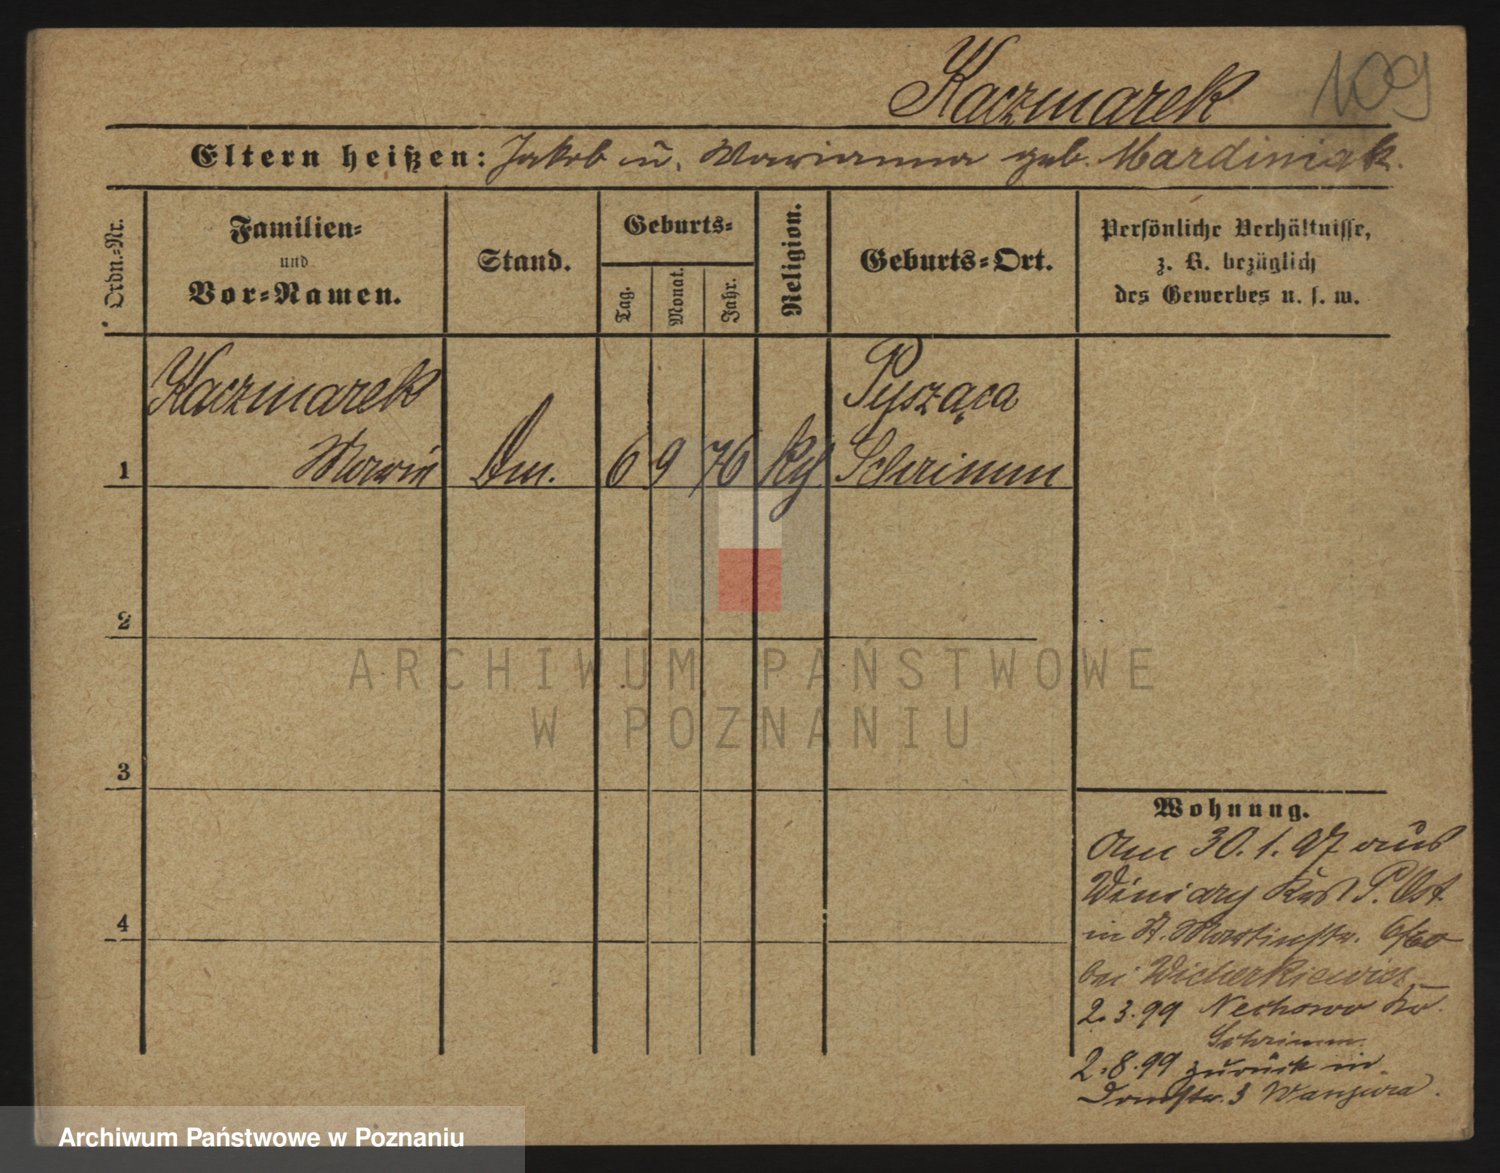 Kaczmarek 109
Eltern heißen: Jakob u. Marianna geb. Mardiniak.
Ordn.-Nr.
Familien-
und
Vor-Namen.
Stand.
Geburts-
Tag.
Monat.
Jahr.
Religion.
Geburts-Ort.
Persönliche Verhältnisse,
z. B. bezüglich
des Gewerbes u. s. w.
Kaczmarek Pysząca
1 Marie Dm. 6 9 76 Schrimm
2
ARCHIWUM PAŃSTWOWE
W POZNANIU
3
4
Wohnung.
Am 30.1.97 aus
Winiary P. Ost.
in St. Martinstr.
bei Wicherkiewicz
2.3.99 Nechowo Kr.
Schrimm.
2.8.99 zurück in
Domstr. 3 Wanjura.
Archiwum Państwowe w Poznaniu